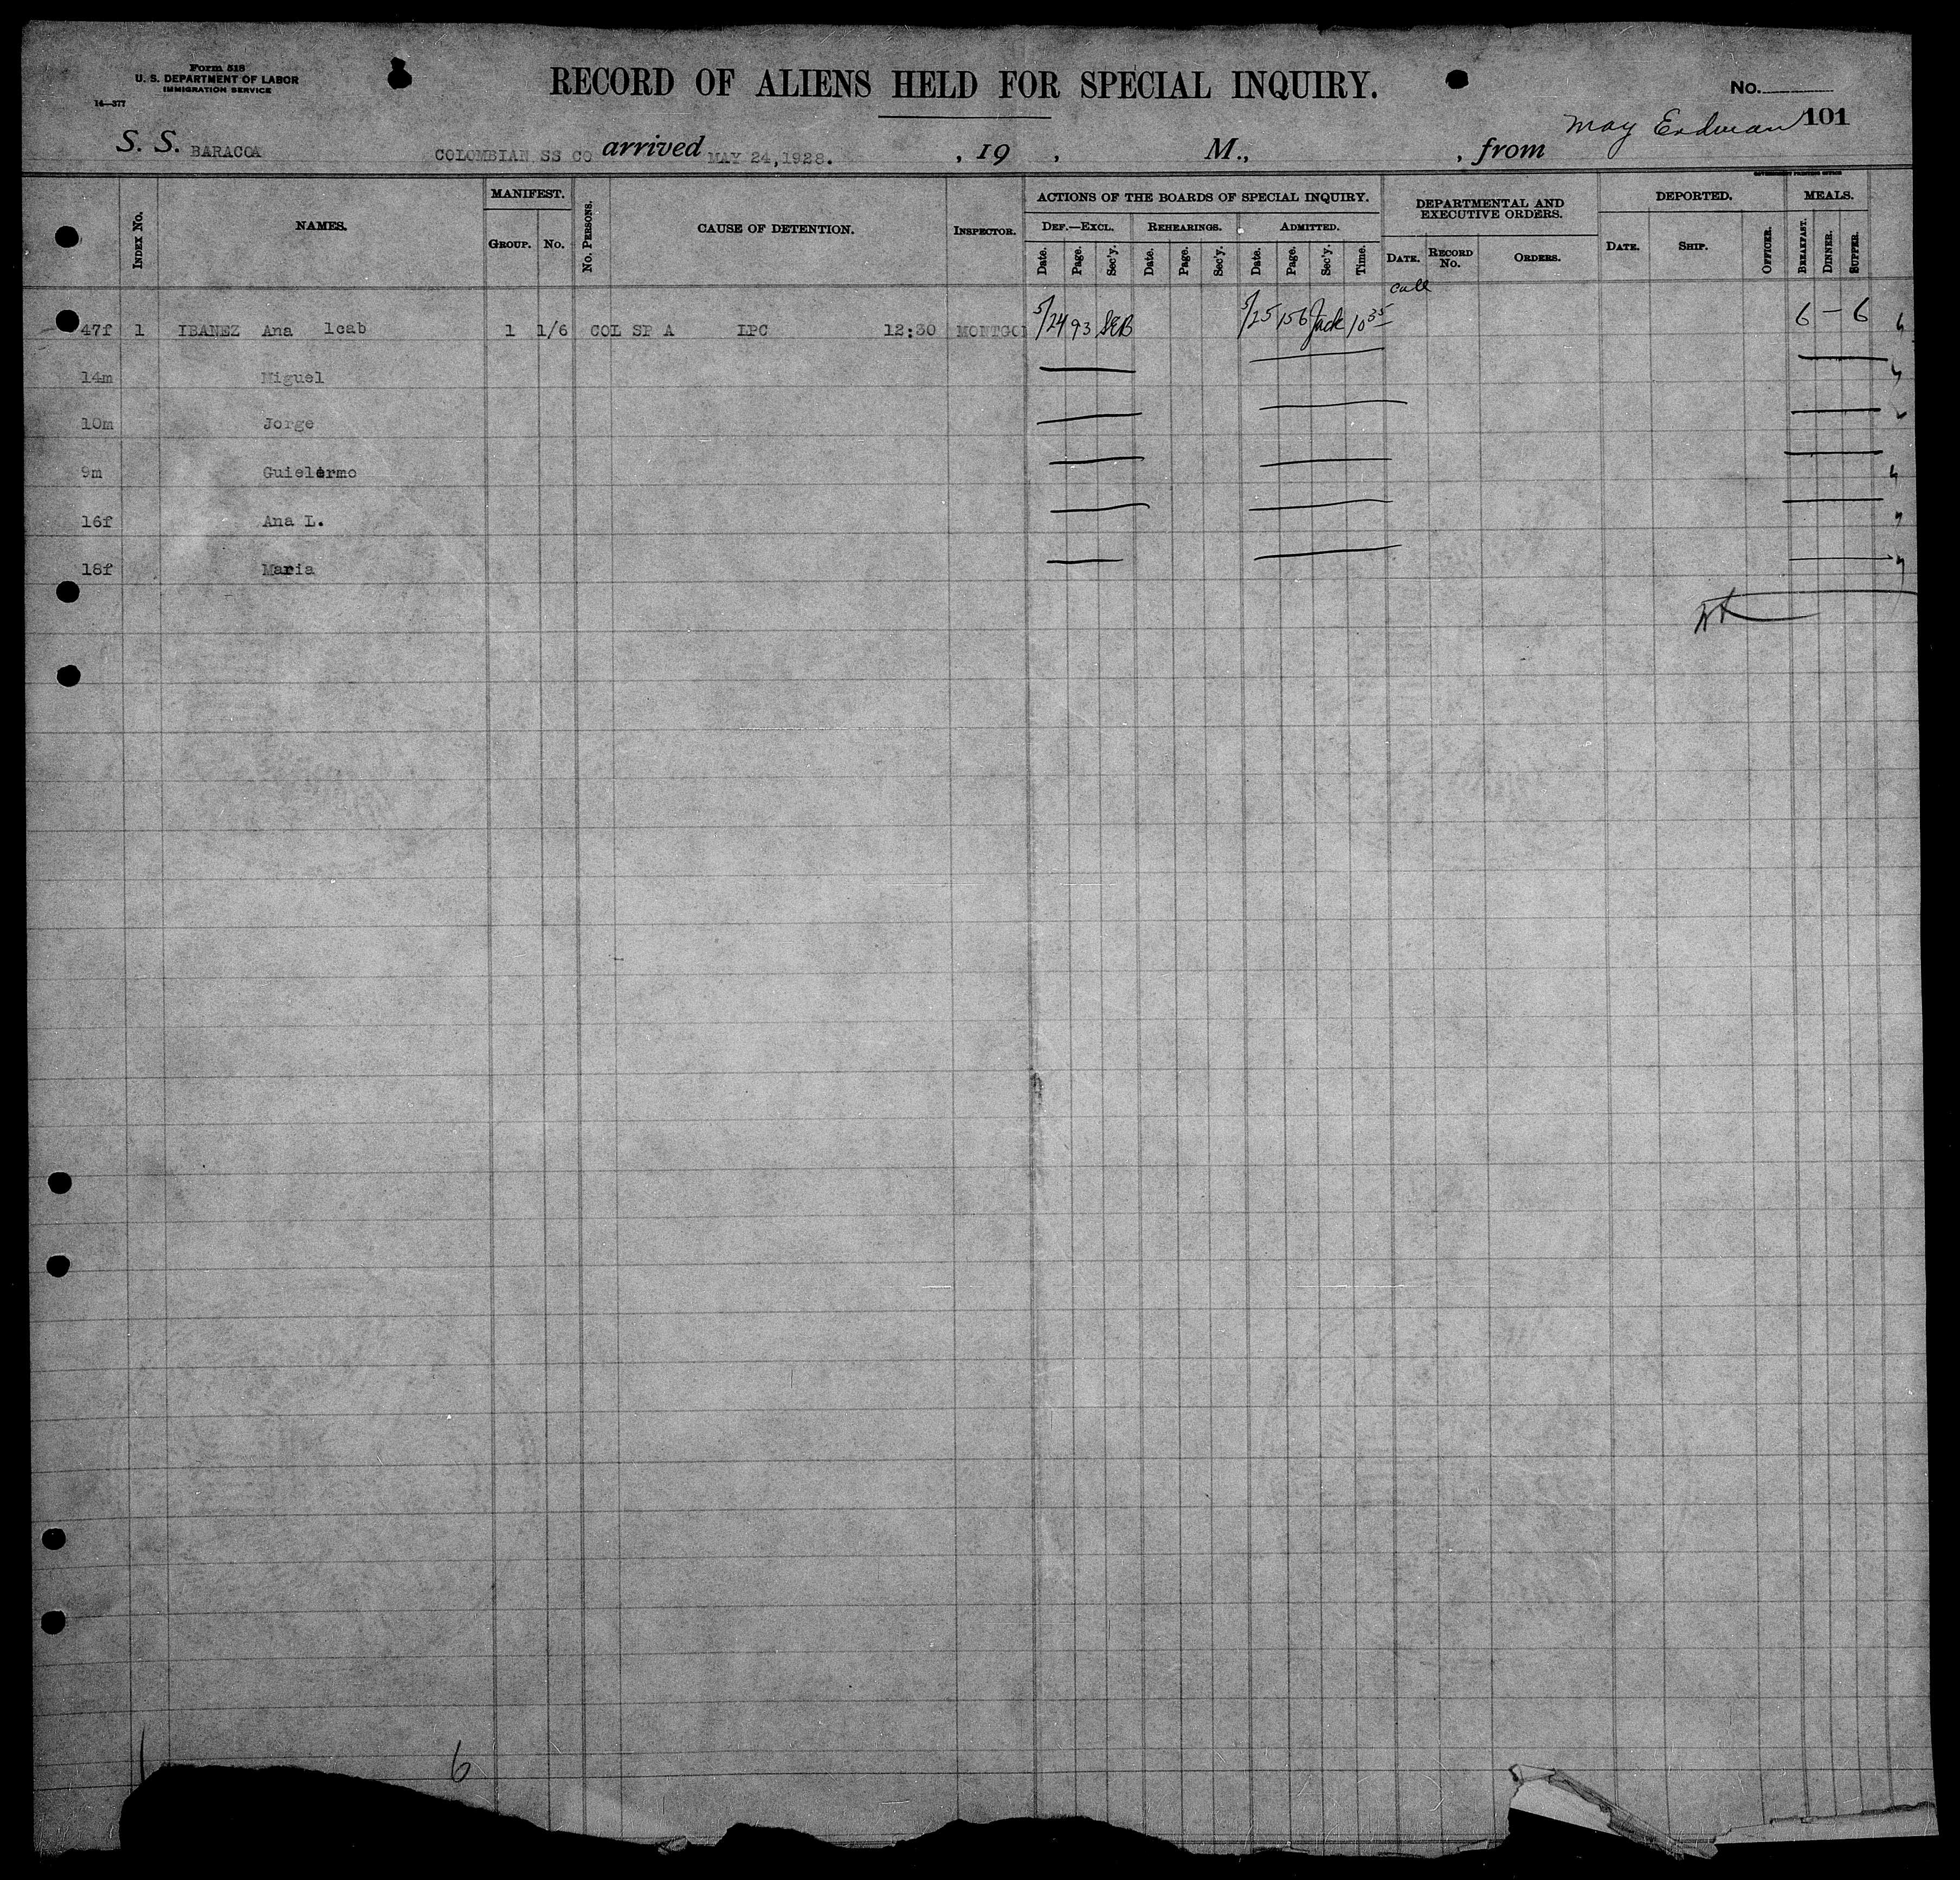 Form 518
U. S. DEPARTMENT OF LABOR
IMMIGRATION SERVICE
14—377
RECORD OF ALIENS HELD FOR SPECIAL INQUIRY.
No.
May Erdman 101
S. S. BARACOA COLOMBIAN SS CO arrived MAY 24,1928. , 19 , M., , from
GOVERNMENT PRINTING OFFICE
Index No. NAMES. MANIFEST. Group. No. No. Persons. CAUSE OF DETENTION. Inspector. ACTIONS OF THE BOARDS OF SPECIAL INQUIRY. DEPARTMENTAL AND EXECUTIVE ORDERS. DEPORTED. MEALS.
Def.—Excl. Rehearings. Admitted.
Date. Page. Sec'y. Date. Page. Sec'y. Date. Page. Sec'y. Time. Date. Record No. Orders. Date. Ship. Officer. Breakfast. Dinner. Supper.
47f 1 IBANEZ Ana 1cab 1 1/6 COL SP A LPC 12:30 MONTGO 5/24 93 SEB 5/25 156 Jack 10 35 6 — 6
14m Miguel
10m Jorge
9m Guielermo
16f Ana L.
18f Maria
6